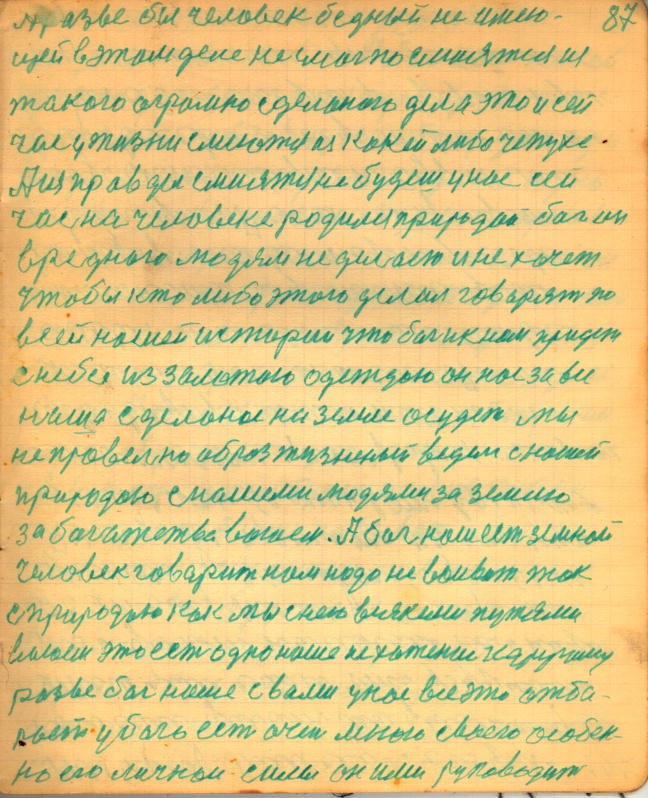 87
А, разве был человек бедный не имею-
щей в этом деле не смог посмиятся из
такого огромно сделаного дела это и сей
час у жизни смиются из какей либо чепухе.
А из правде смиятся не будеш у нас сей
час на человеке родился природай бог он
вредного людям не делает и не хочет
чтобы кто либо этого делал говарят по
всей нашей истории что бог и к нам придет
с небес из залотою одеждою он нас за все
наша сделаное на земле осудет мы
не провелно образ жизненый ведем с нашей
природою с нашеми людями за землю
за богатства воюем. А бог наш ест земной
человек говарит нам надо не воиват так
с природою как мы с нею всякеми путями
воюем это ест одно наше не хатение к другому
разве бог наше с вами у нас все это отба-
рает у бога ест очен много своего особен-
но его личнои силы он ими руководит